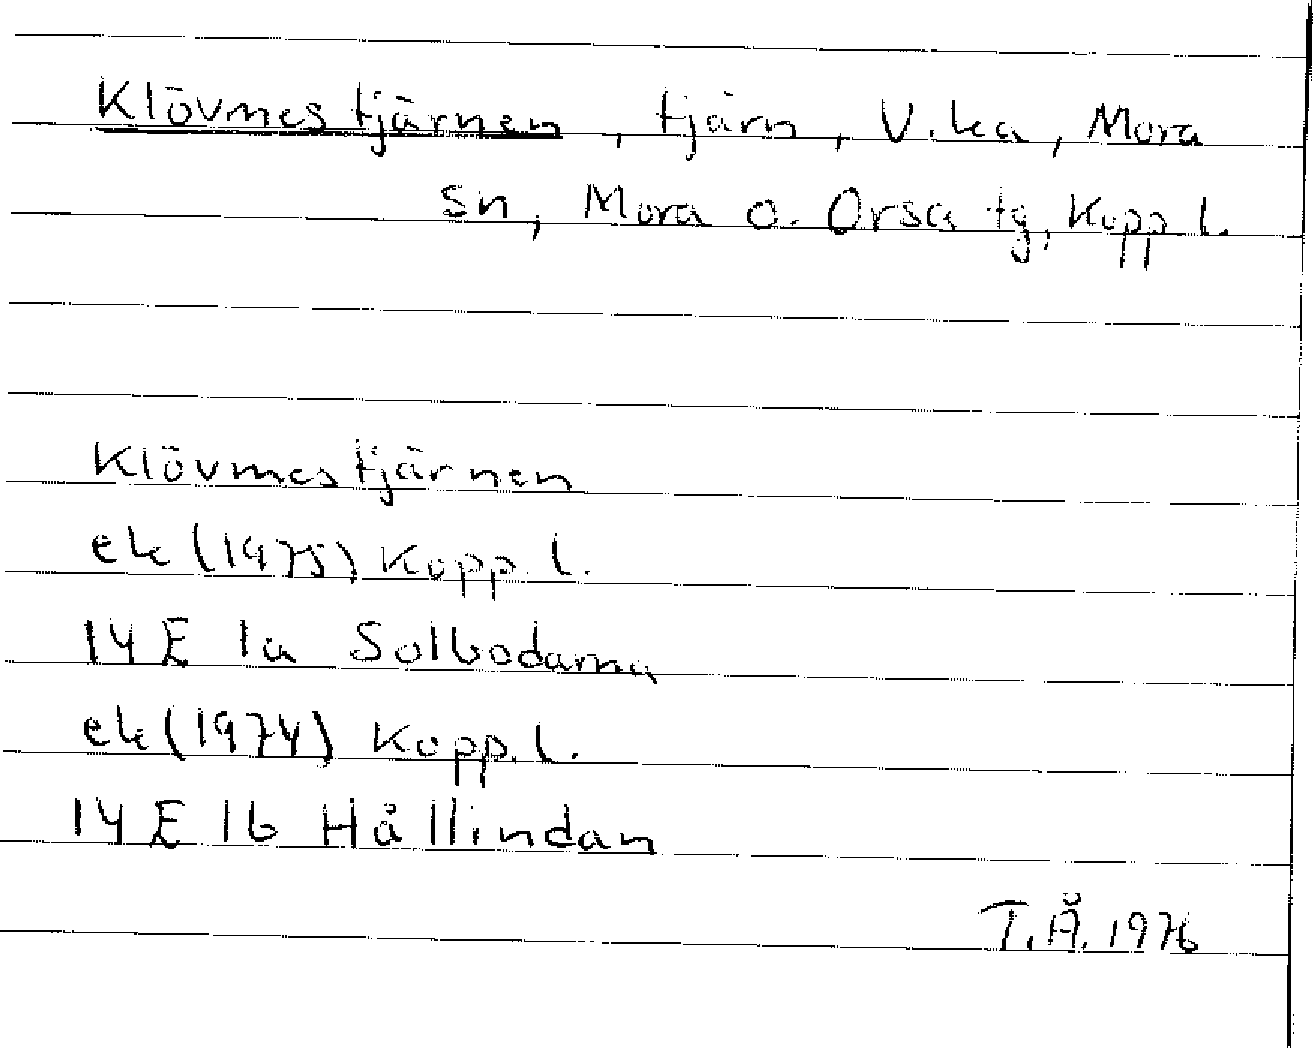 Klövmestjärnen, tjärn, V.ka, Mora
sn, Mora o. Orsa tg, Kopp l.
Klövmestjärnen
ek (1975) Kopp. l.
14 E 1a Solbodarna
ek (1974) Kopp. l.
14 E 1b Hållindan
T.Å. 1976